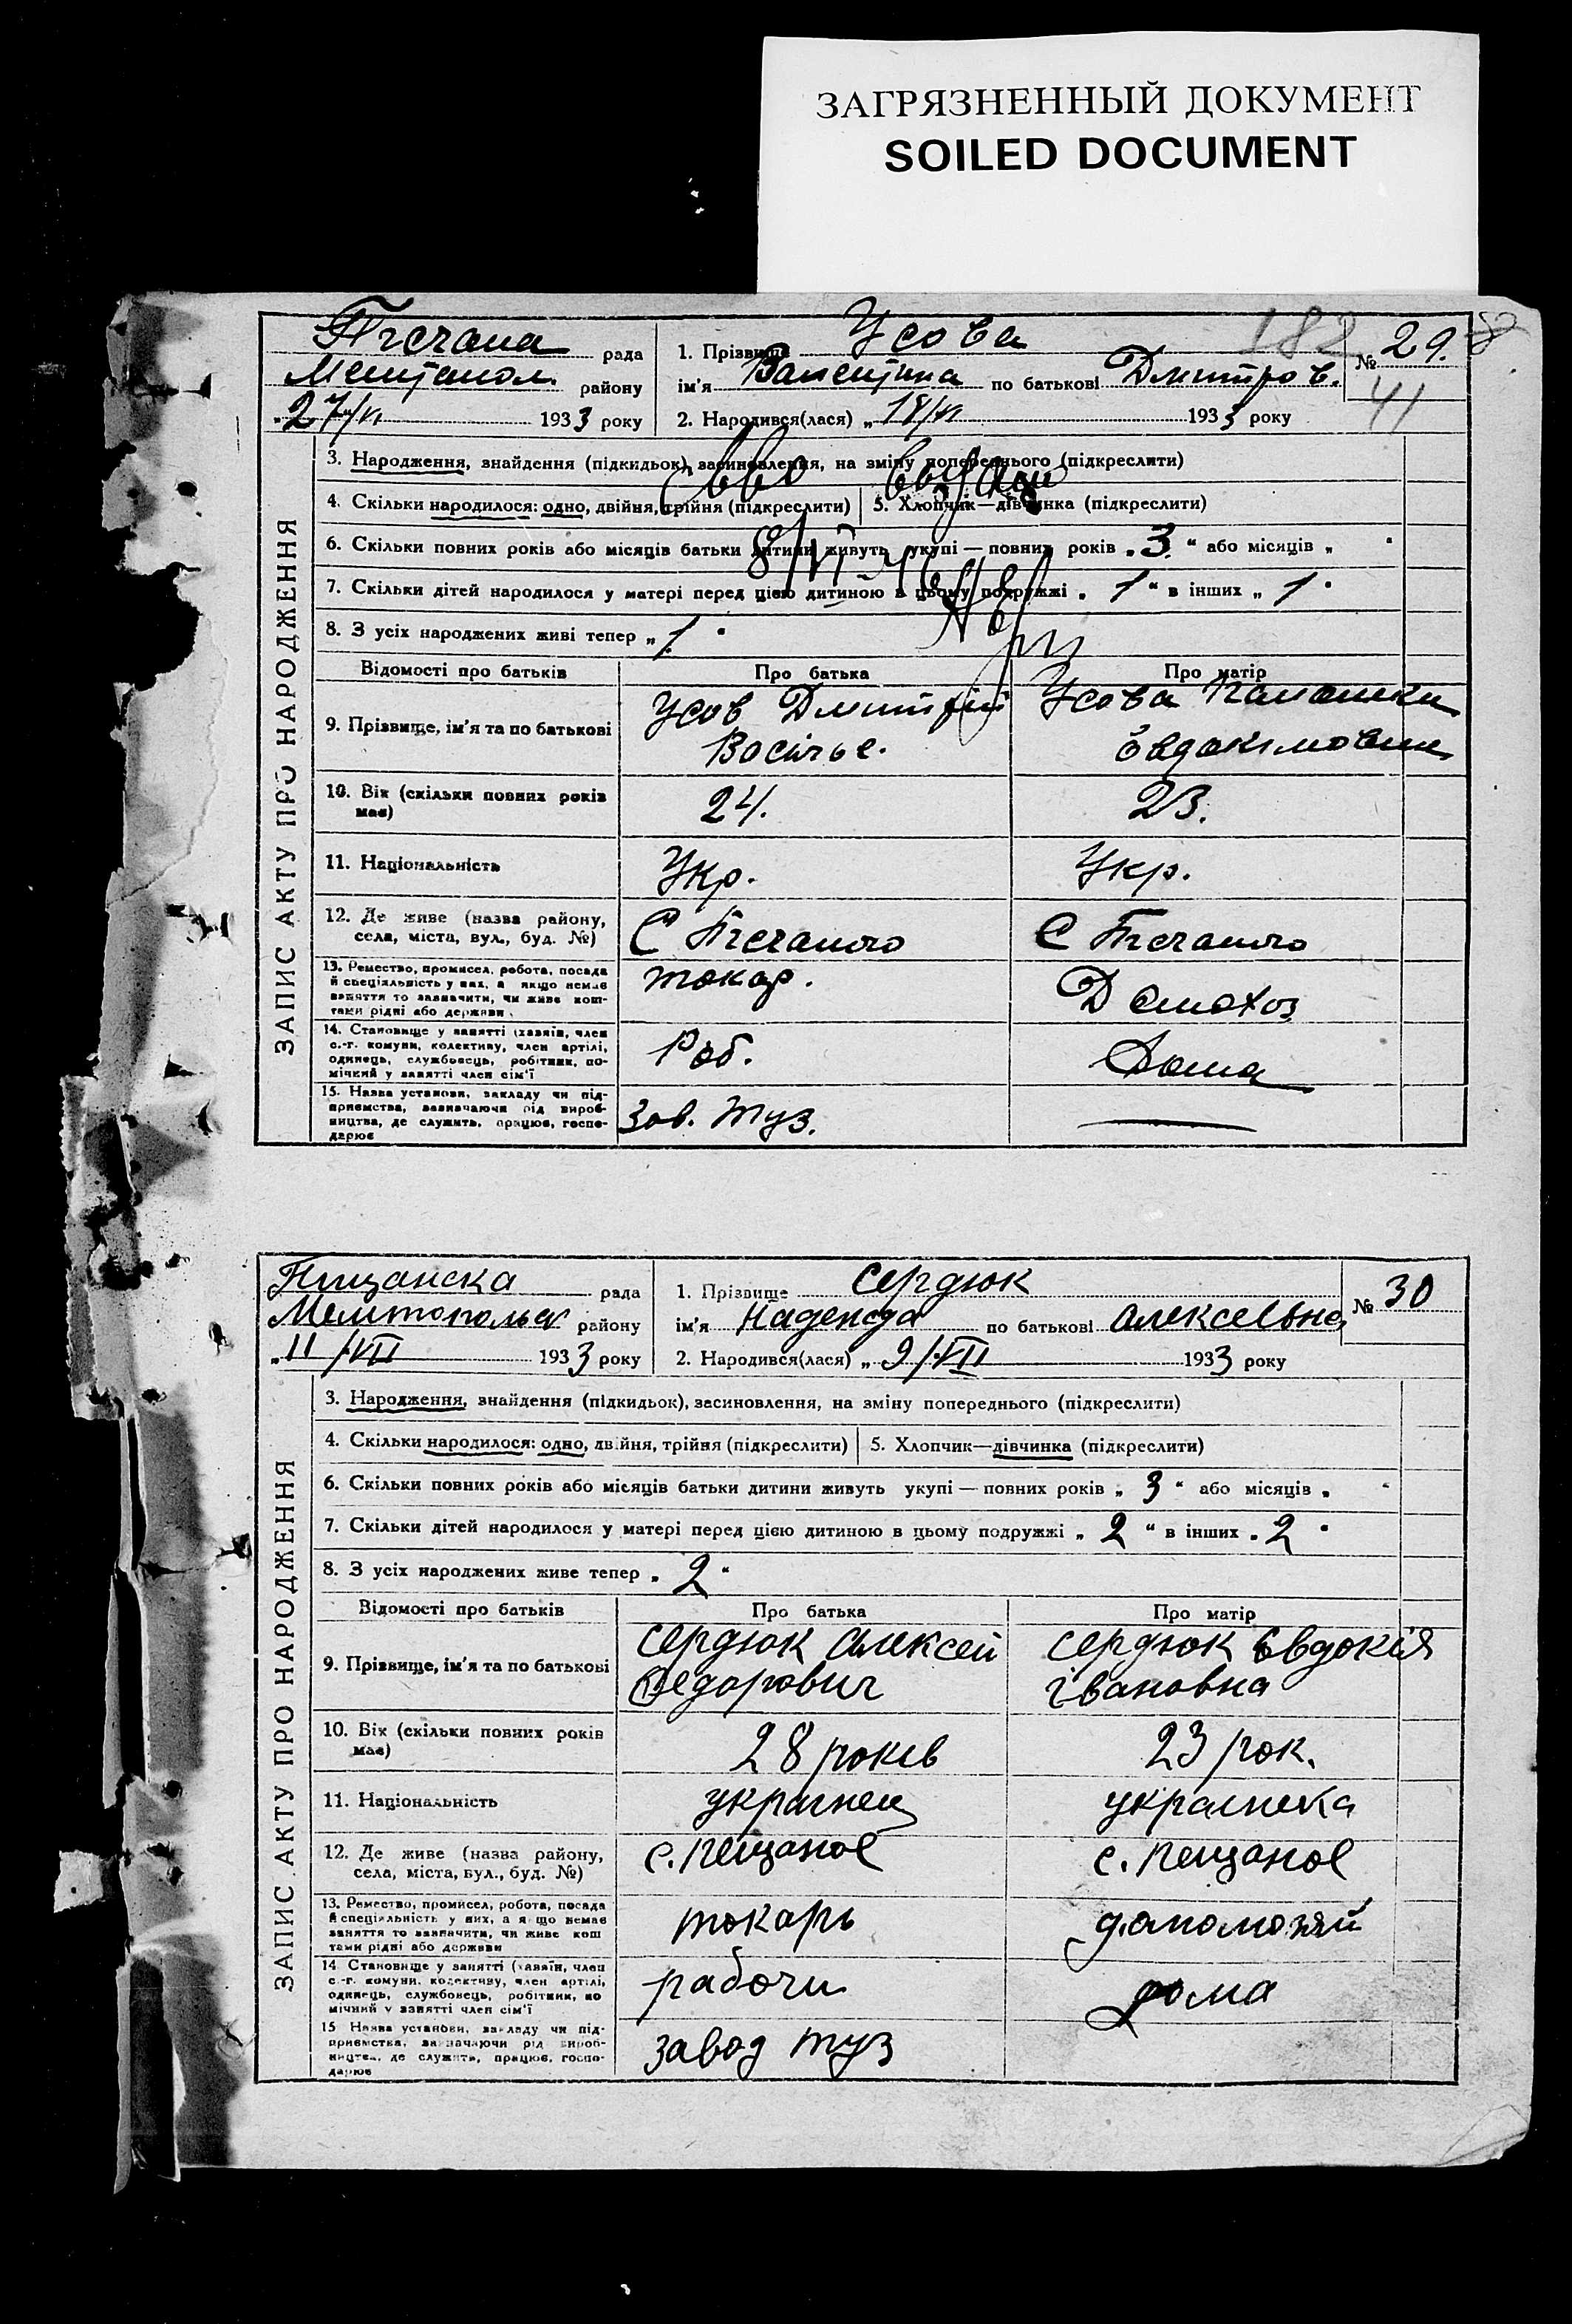 ЗАГРЯЗНЕННЫЙ ДОКУМЕНТ
SOILED DOCUMENT
182
рада
Мелитопол. району
27/VI 1933 року
1. Прізвище Усова
ім'я Валентина по батькові Дмитров.
2. Народився(лася) „18/VI 1933 року
№ 29.
41
ЗАПИС АКТУ ПРО НАРОДЖЕННЯ
3. Народження, знайдення (підкидьок), засиновлення, на зміну попереднього (підкреслити)
4. Скільки народилося: одно, двійня, трійня (підкреслити)
5. Хлопчик—дівчинка (підкреслити)
6. Скільки повних років або місяців батьки дитини живуть укупі — повних років „3“ або місяців „ “
7. Скільки дітей народилося у матері перед цією дитиною в цьому подружжі „1“ в інших „1“
8. З усіх народжених живі тепер „1“
Відомості про батьків
Про батька
Про матір
9. Прізвище, ім'я та по батькові
Усов Дмитрій
Усова
10. Вік (скільки повних років має)
24.
23.
11. Національність
Укр.
Укр.
12. Де живе (назва району,
села, міста, вул., буд. №)
13. Ремество, промисел, робота, посада
й спеціяльність у них, а якщо немає
заняття то зазначити, чи живе кош-
тами рідні або держави
токар.
14. Становище у занятті (хазяїн, член
с.-г. комуни, колективу, член артілі,
одинець, службовець, робітник, по-
мічний у занятті член сім'ї
Роб.
Дома
15. Назва установи, закладу чи під-
приємства, зазначаючи рід вироб-
ництва, де служить, працює, госпо-
дарює
Зав. туз.
Пищанска рада
Мелитопольск району
„11/VII 1933 року
1. Прізвище Сердюк
ім'я Надежда по батькові Алексеевна
2. Народився(лася) „9/VII 1933 року
№ 30
ЗАПИС АКТУ ПРО НАРОДЖЕННЯ
3. Народження, знайдення (підкидьок), засиновлення, на зміну попереднього (підкреслити)
4. Скільки народилося: одно, двійня, трійня (підкреслити)
5. Хлопчик—дівчинка (підкреслити)
6. Скільки повних років або місяців батьки дитини живуть укупі — повних років „3“ або місяців „ “
7. Скільки дітей народилося у матері перед цією дитиною в цьому подружжі „2“ в інших „2“
8. З усіх народжених живе тепер „2“
Відомості про батьків
Про батька
Про матір
9. Прізвище, ім'я та по батькові
Сердюк Алексей
Федорович
Сердюк Євдокія
івановна
10. Вік (скільки повних років має)
28 років
23 рок.
11. Національність
украінец
украінка
12. Де живе (назва району,
села, міста, вул., буд. №)
с. Пещаное
с. Пещаное
13. Ремество, промисел, робота, посада
й спеціяльність у них, а якщо немає
заняття то зазначити, чи живе кош
тами рідні або держави
токарь
14. Становище у занятті (хазяїн, член
с.-г. комуни, колективу, член артілі,
одинець, службовець, робітник, по
мічний у занятті член сім'ї
рабочи
дома
15 Назва установи, закладу чи під-
приємства, зазначаючи рід вироб-
ництва, де служить, працює, госпо-
дарює
завод туз